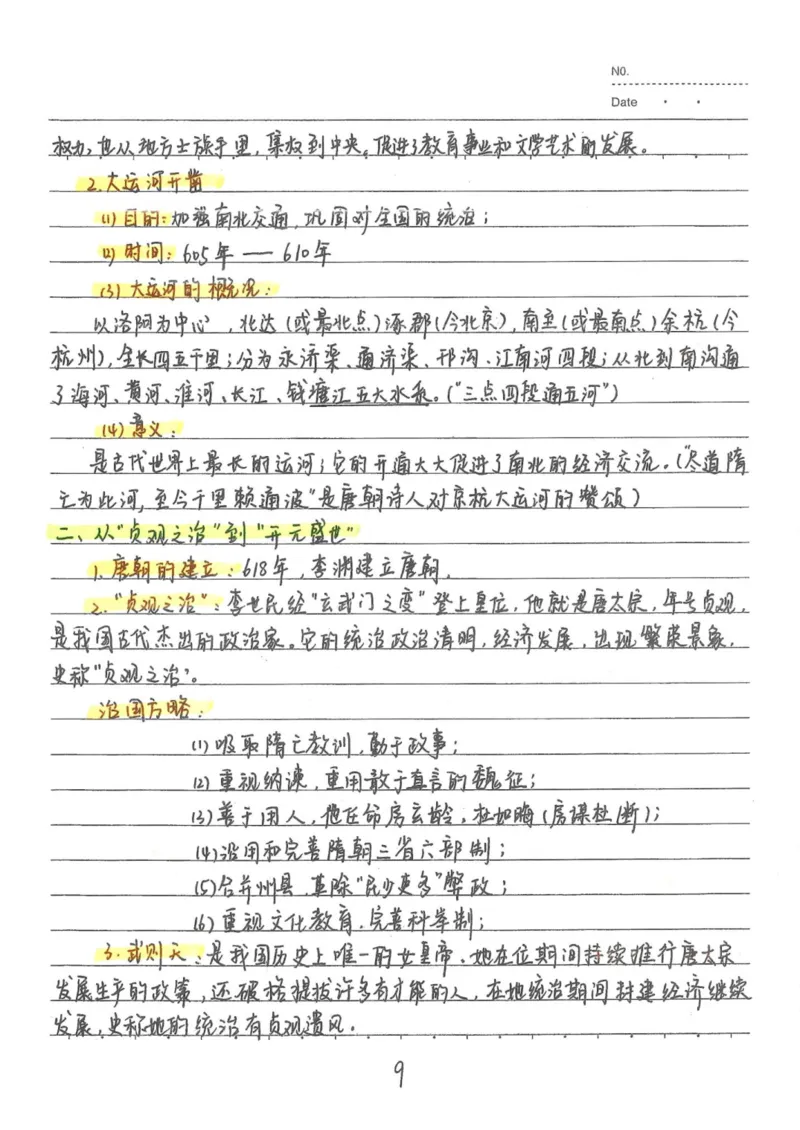 NO.
Date
权力,也从地方士族手里,集权到中央。促进了教育事业和文学艺术的发展。
2.大运河开凿
(1)目的:加强南北交通,巩固对全国的统治;
(2)时间:605年——610年
(3)大运河的概况:
以洛阳为中心,北达(或最北点)涿郡(今北京),南至(或最南点)余杭(今
杭州),全长四五千里;分为永济渠、通济渠、邗沟、江南河四段;从北到南沟通
了海河、黄河、淮河、长江、钱塘江五大水系。("三点四段通五河")
(4)意义:
是古代世界上最长的运河;它的开通大大促进了南北的经济交流。("尽道隋
亡为此河,至今千里赖通波"是唐朝诗人对京杭大运河的赞颂)
二、从"贞观之治"到"开元盛世"
1.唐朝的建立:618年,李渊建立唐朝.
2."贞观之治":李世民经"玄武门之变"登上皇位,他就是唐太宗,年号贞观,
是我国古代杰出的政治家。它的统治政治清明,经济发展,出现繁荣景象,
史称"贞观之治"。
治国方略:
(1)吸取隋亡教训,勤于政事;
(2)重视纳谏,重用敢于直言的魏征;
(3)善于用人,他任命房玄龄,杜如晦(房谋杜断);
(4)沿用和完善隋朝三省六部制;
(5)合并州县,革除"民少吏多"弊政;
(6)重视文化教育,完善科举制;
3.武则天:是我国历史上唯一的女皇帝、她在位期间持续推行唐太宗
发展生产的政策,还破格提拔许多有才能的人,在她统治期间封建经济继续
发展,史称她的统治有贞观遗风。
9